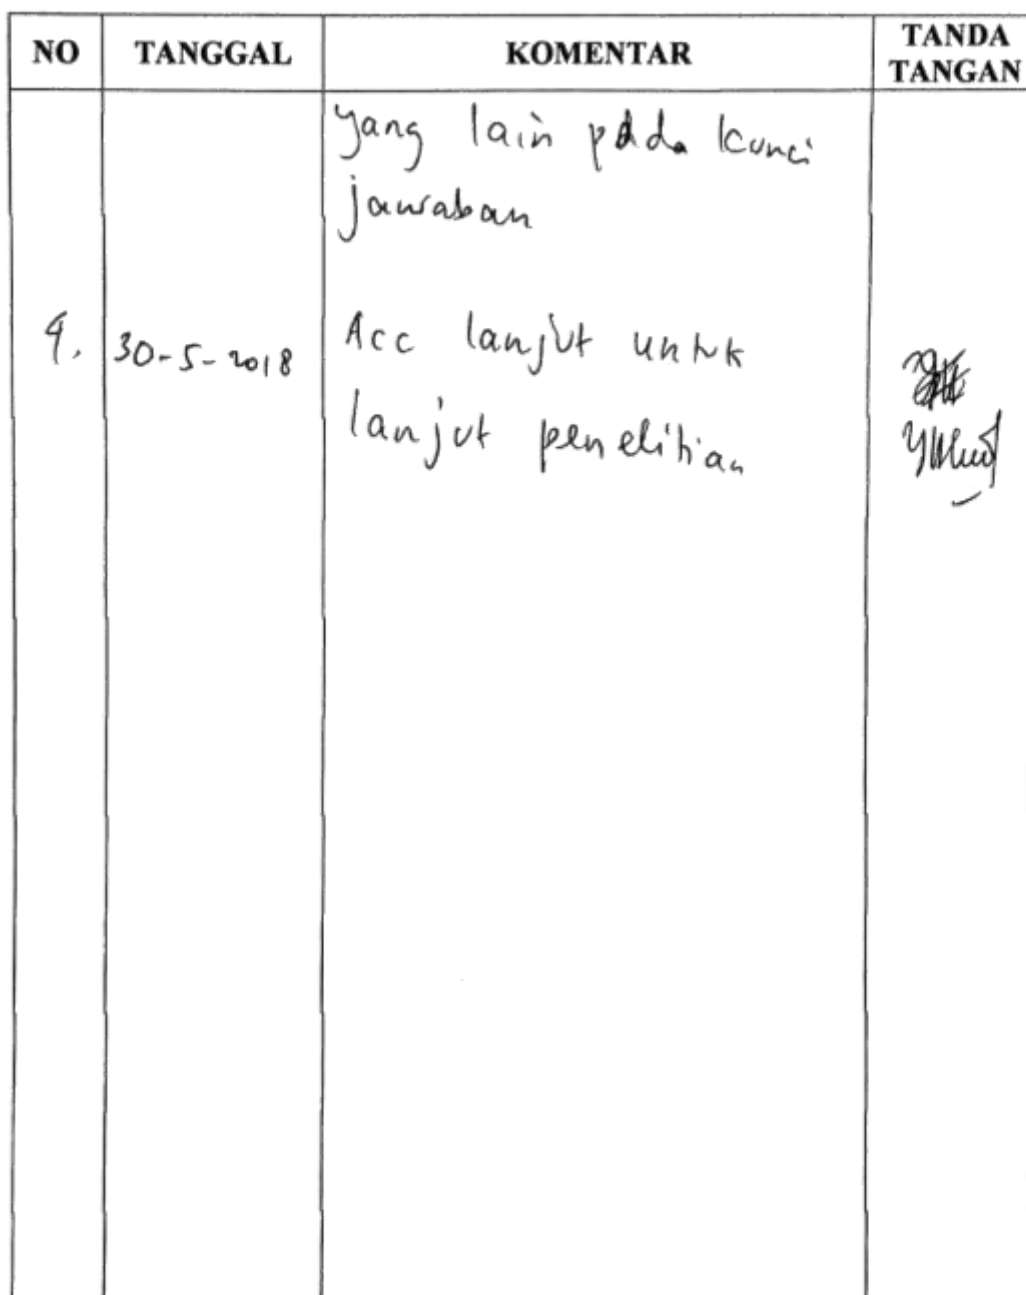 NO TANGGAL KOMENTAR TANDA TANGAN
yang lain pada kunci
jawaban
4. 30-5-2018 Acc lanjut untuk
lanjut penelitian